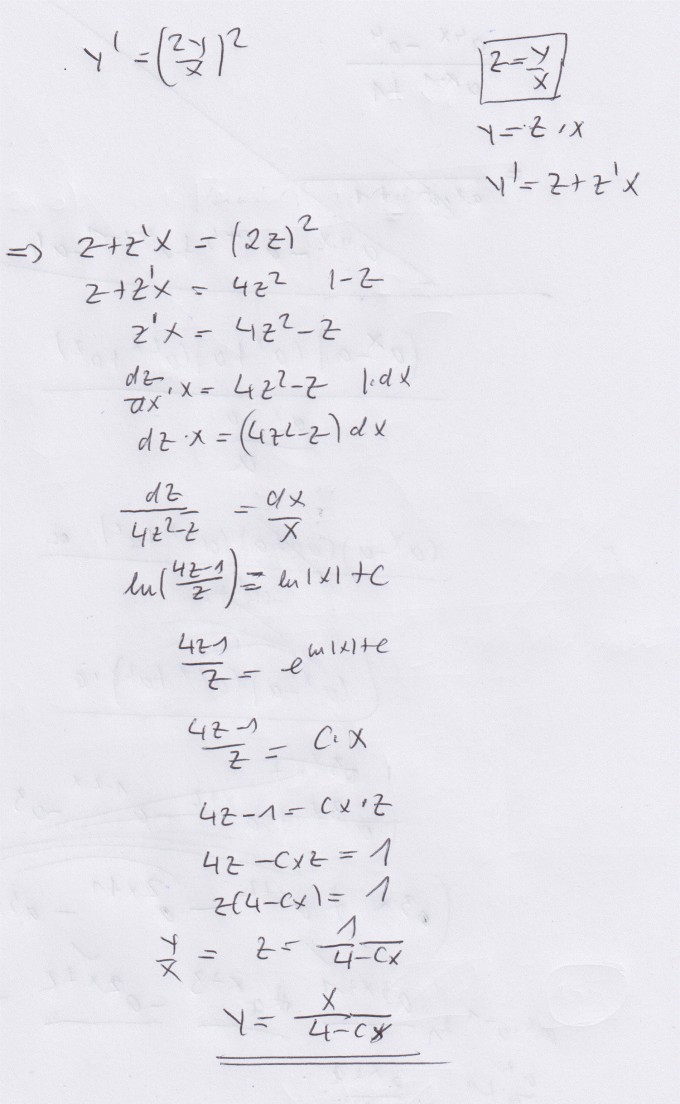 y' = (2y/x)²
z = y/x
y = z·x
y' = z + z'x
=> z + z'x = (2z)²
z + z'x = 4z² |-z
z'x = 4z² - z
dz/dx · x = 4z² - z |·dx
dz · x = (4z² - z) dx
dz/(4z² - z) = dx/x
ln((4z-1)/z) = ln|x| + C
(4z-1)/z = e^(ln|x|+c)
(4z-1)/z = C·x
4z - 1 = Cx·z
4z - Cxz = 1
z(4 - Cx) = 1
y/x = z = 1/(4 - Cx)
y = x/(4 - Cx)